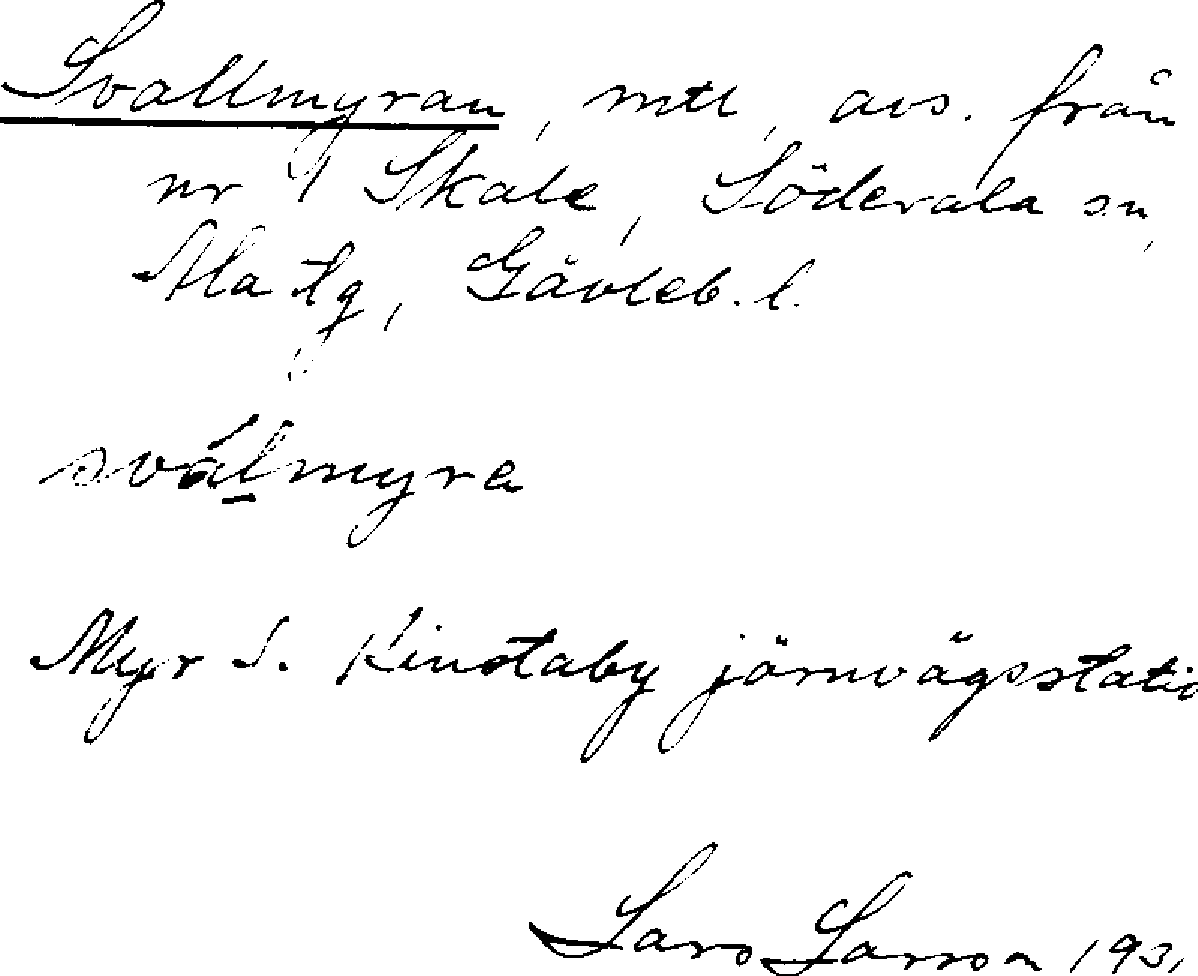 Svallmyran, mtl, avs. från
nr 1 Skale, Söderala sn,
Ala tg, Gävleb. l.
sválmyra
Myr S. Kinstaby järnvägsstatio
Lars Larsson 1931